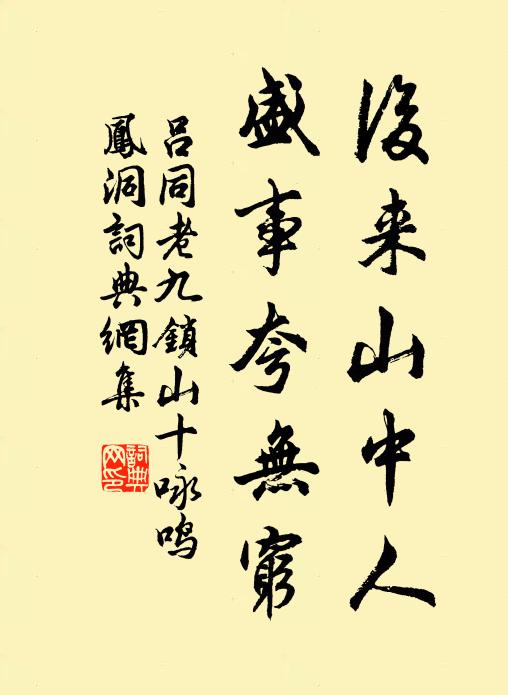 後来山中人
盛事夸無窮
吕同老九鎖山十咏鸣
鳳洞詞典網集
詞典网印